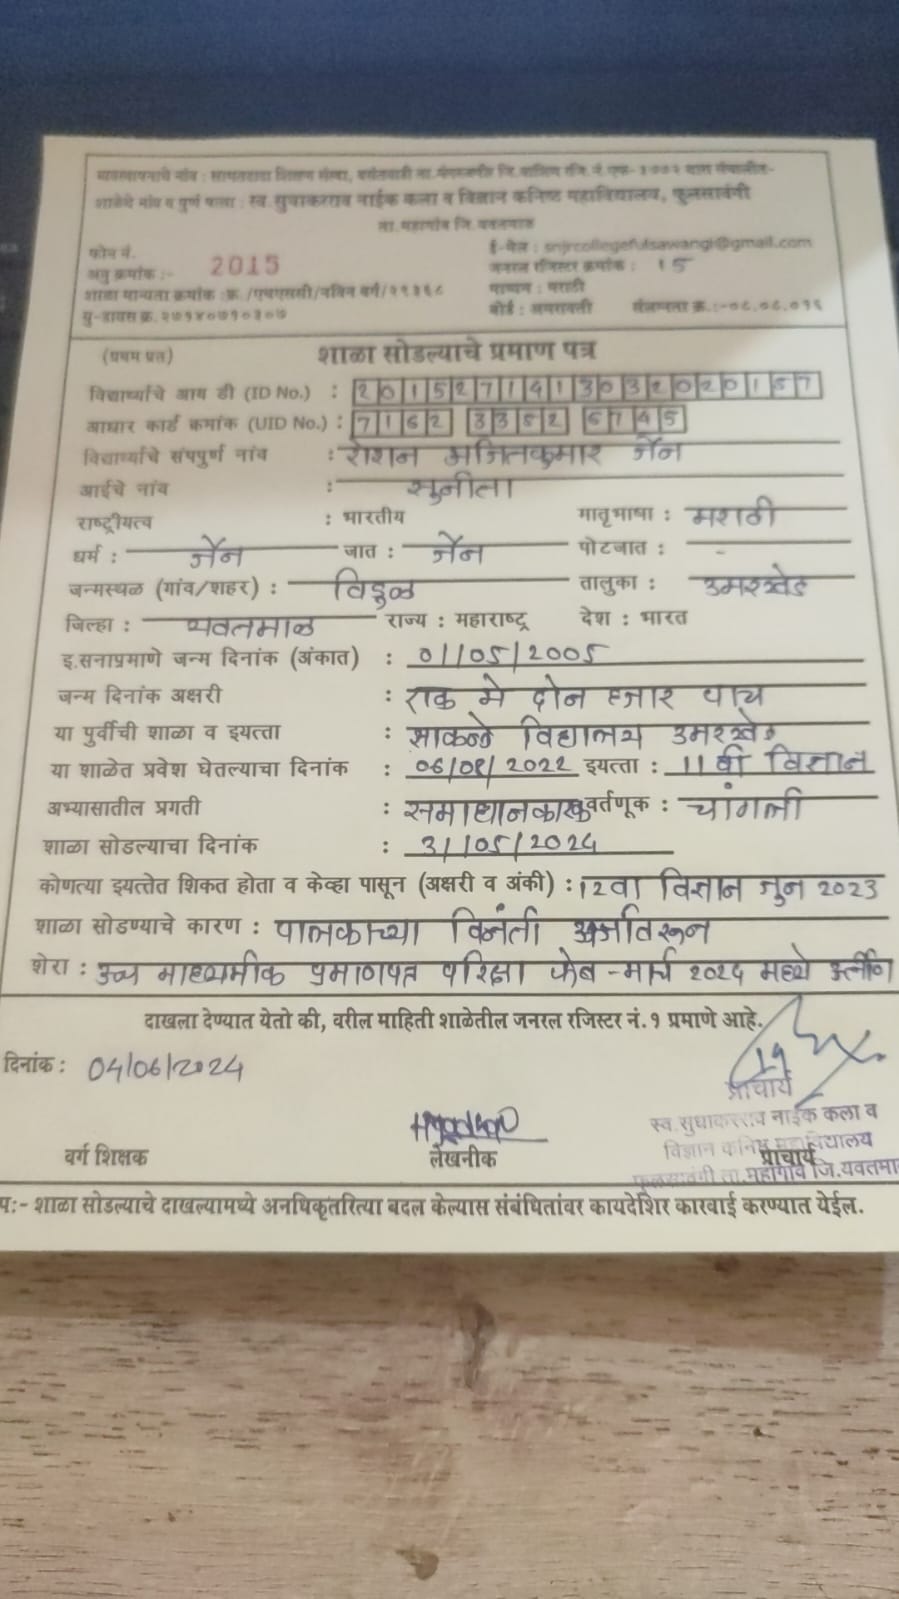 शाळेचे नांव व पुर्ण पत्ता : स्व.सुधाकरराव नाईक कला व विज्ञान कनिष्ठ महाविद्यालय, फुलसावंगी
ता.महागांव जि.यवतमाळ
फोन नं. ई-मेल : snjrcollegefulsawangi@gmail.com
अनु क्रमांक :- 2015 जनरल रजिस्टर क्रमांक : 15
शाळा मान्यता क्रमांक :क्र./एचएससी/नविन वर्ग/२९३६८ माध्यम : मराठी
यु-डायस क्र.२७१४०७१०३०७ बोर्ड : अमरावती संलग्नता क्र.:-०८.०८.०१६
(प्रथम प्रत) शाळा सोडल्याचे प्रमाण पत्र
विद्यार्थ्याचे आय डी (ID No.) : 2015271413032020157
आधार कार्ड क्रमांक (UID No.) : 7162 3352 6745
विद्यार्थ्याचे संपपुर्ण नांव : रोशन अजितकुमार जैन
आईचे नांव : सुनीता
राष्ट्रीयत्व : भारतीय मातृभाषा : मराठी
धर्म : जैन जात : जैन पोटजात : -
जन्मस्थळ (गांव/शहर) : विडुळ तालुका : उमरखेड
जिल्हा : यवतमाळ राज्य : महाराष्ट्र देश : भारत
इ.सनाप्रमाणे जन्म दिनांक (अंकात) : 01/05/2005
जन्म दिनांक अक्षरी : एक मे दोन हजार पाच
या पुर्वीची शाळा व इयत्ता : साकळे विद्यालय उमरखेड
या शाळेत प्रवेश घेतल्याचा दिनांक : 06/08/2022 इयत्ता : 11वी विज्ञान
अभ्यासातील प्रगती : समाधानकारक वर्तणूक : चांगली
शाळा सोडल्याचा दिनांक : 31/05/2024
कोणत्या इयत्तेत शिकत होता व केव्हा पासून (अक्षरी व अंकी) : 12वी विज्ञान जुन 2023
शाळा सोडण्याचे कारण : पालकाच्या विनंती अर्जावरून
शेरा : उच्च माध्यमीक प्रमाणपत्र परिक्षा फेब-मार्च 2024 मध्ये उर्त्तीण
दाखला देण्यात येतो की, वरील माहिती शाळेतील जनरल रजिस्टर नं.१ प्रमाणे आहे.
दिनांक : 04/06/2024
प्राचार्य
स्व.सुधाकरराव नाईक कला व
विज्ञान कनिष्ठ महाविद्यालय
वर्ग शिक्षक लेखनीक प्राचार्य
फुलसावंगी ता.महागांव जि.यवतमा
प:- शाळा सोडल्याचे दाखल्यामध्ये अनधिकृतरित्या बदल केल्यास संबंधितांवर कायदेशिर कारवाई करण्यात येईल.